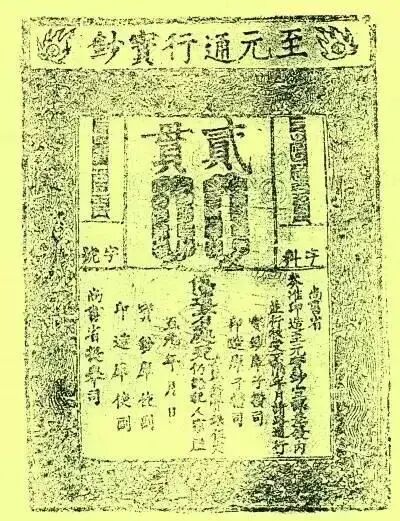 至元通行寶鈔
貳貫
字料
字號
尚書省
奏准印造至元寶鈔宣課差役內
並行收受不限年月諸路通行
寶鈔庫子攢司
印造庫子攢司
偽造者處死
仍給犯人家產
至元 年 月 日
寶鈔庫使副
印造庫使副
尚書省提舉司